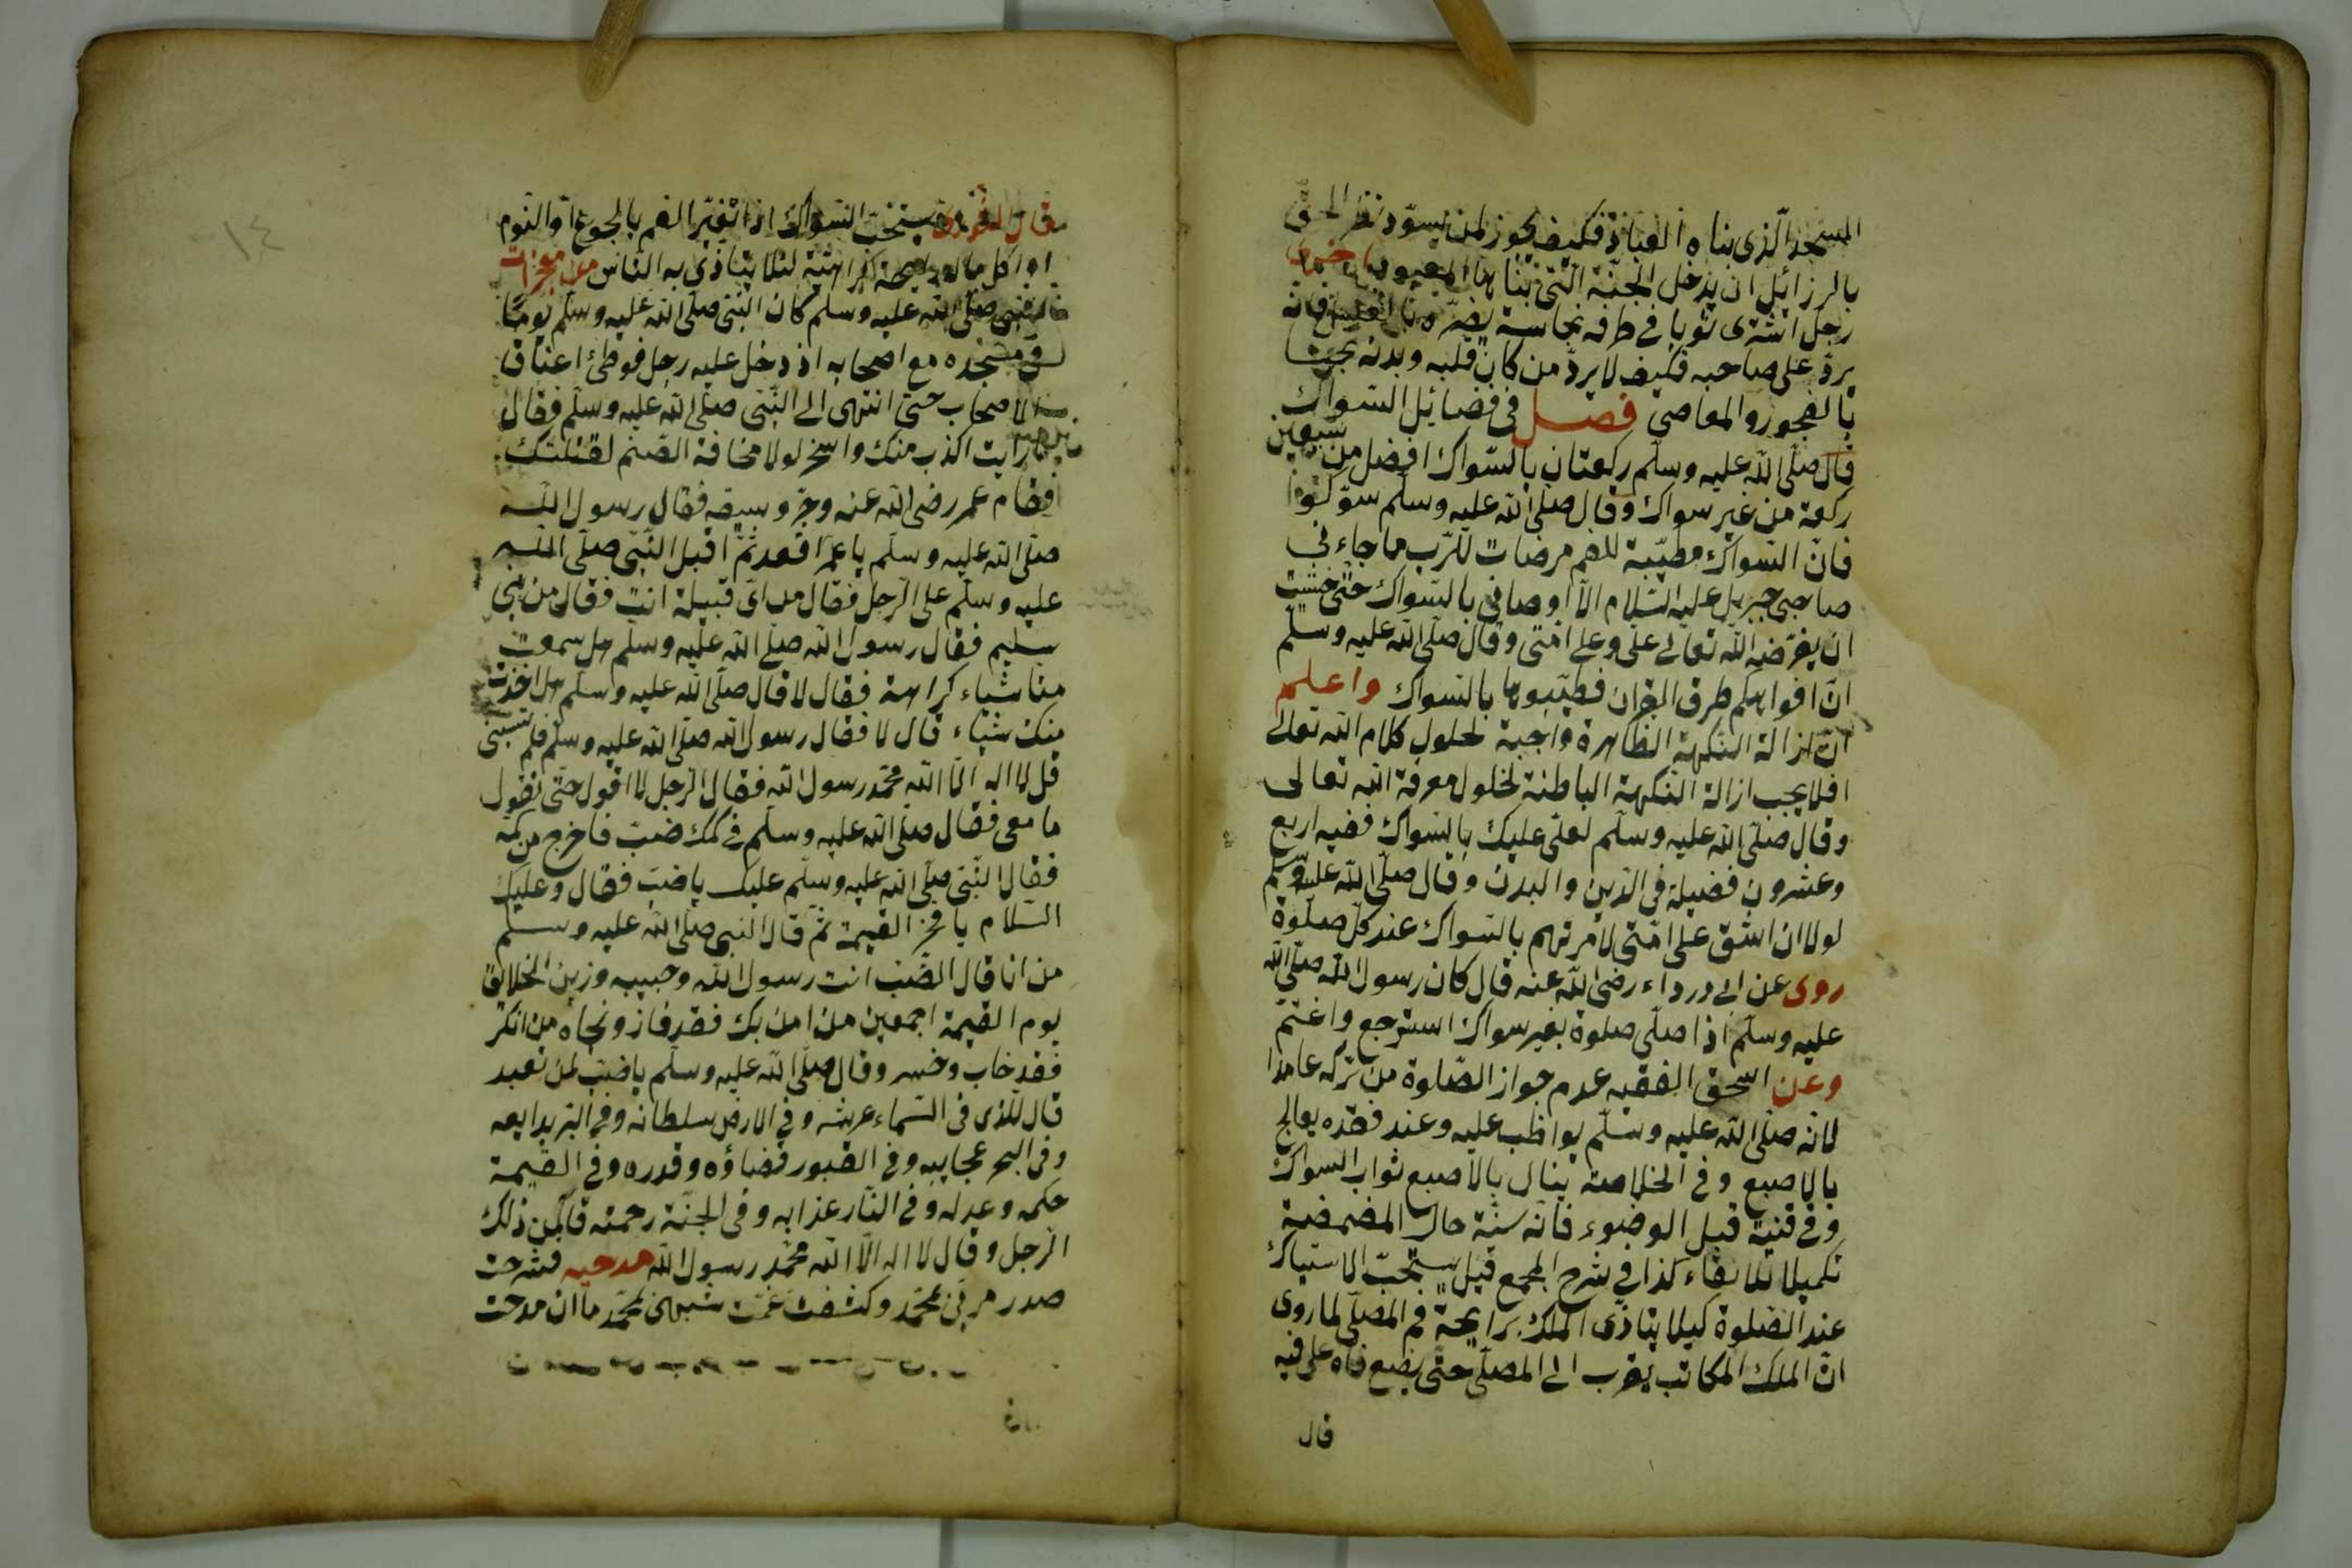 المسجد الّذى بناه العباد فكيف يجوز لمن يسوّد نظر الحق
بالرزائل ان يدخل الجنّة الّتى بناها المعبود اخرى
رجل اشترى ثوبا فى طرفه نجاسة يضرّه فانّه
يردّ على صاحبه فكيف لا يردّ من كان قلبه وبدنه نجسا
بالفجور والمعاصى فصل فى فضائل السّواك
قال صلّى اللّه عليه وسلّم ركعتان بالسّواك افضل من سبعين
ركعة من غير سواك وقال صلّى اللّه عليه وسلّم سوّكوا
فانّ السّواك مطيّبة للفم مرضات للرّب ما جاء نى
صاحبى جبريل عليه السّلام الّا اوصانى بالسّواك حتّى خشيت
ان يفرّضه اللّه تعالى علىّ وعلى امّتى وقال صلّى اللّه عليه وسلّم
انّ افواهكم طرق القران فطيّبوها بالسّواك واعلم
انّ ازالة النّكهة الظاهرة واجبة لحلول كلام اللّه تعالى
افلا يجب ازالة النّكهة الباطنة لحلول معرفة اللّه تعالى
وقال صلّى اللّه عليه وسلّم لعلىّ عليك بالسّواك ففيه اربع
وعشرون فضيلة فى الدّين والبدن وقال صلّى اللّه عليه وسلّم
لولا ان اشقّ على امّتى لامرتهم بالسّواك عند كلّ صلوة
روى عن ابى درداء رضى اللّه عنه قال كان رسول اللّه صلّى اللّه
عليه وسلّم اذا صلّى صلوة بغير سواك استرجع واغتمّ
وعن اسحق الفقيه عدم جواز الصّلوة من تركه عامدا
لانّه صلّى اللّه عليه وسلّم يواظب عليه وعند فقده يعالج
بالاصبع وفى الخلاصة ينال بالاصبع ثواب السواك
وفى قنية قبل الوضوء فانّه سنّة حال المضمضة
تكميلا للانقاء كذا فى شرح المجمع قيل يستحبّ الاستياك
عند الصّلوة كيلا يتاذّى الملك برايحة فم المصلّى لما روى
انّ الملك المكاتب يقرب الى المصلّى حتّى يضع فاه على فيه
قال
يستحبّ السّواك اذا تغيّر الفم بالجوع او النّوم
او اكل ما له رايحة كراهيّة لئلا يتاذى به النّاس من معجزات
النّبى صلّى اللّه عليه وسلّم كان النّبى صلّى اللّه عليه وسلّم يومًا
فى مسجده مع اصحابه اذ دخل عليه رجل فوطئ اعناق
الاصحاب حتى انتهى الى النّبى صلّى اللّه عليه وسلّم فقال
رايت اكذب منك واسخر لولا مخافة الصّنم لقتلتك
فقام عمر رضى اللّه عنه وجرّ سيفه فقال رسول اللّه
صلّى اللّه عليه وسلّم يا عمر اقعد ثمّ اقبل النّبى صلّى اللّه
عليه وسلّم على الرّجل فقال من اىّ قبيلة انت فقال من بنى
سليم فقال رسول اللّه صلّى اللّه عليه وسلّم هل سمعت
منّا شياء كراهة فقال لا قال صلّى اللّه عليه وسلّم هل اخذت
منك شياء قال لا فقال رسول اللّه صلّى اللّه عليه وسلّم فلم تسبّنى
قل لا اله الّا اللّه محمّد رسول اللّه فقال الرّجل لا اقول حتّى تقول
ما معى فقال صلّى اللّه عليه وسلّم فى كمّك ضبّ فاخرج من كمّه
فقال النّبى صلّى اللّه عليه وسلّم عليك يا ضبّ فقال وعليك
السّلام يا فخر القيمة ثمّ قال النّبى صلّى اللّه عليه وسلّم
من انا قال الضّبّ انت رسول اللّه وحبيبه وزين الخلائق
يوم القيمة اجمعين من امن بك فقد فاز ونجاه من انكر
فقد خاب وخسر وقال صلّى اللّه عليه وسلّم يا ضبّ لمن تعبد
قال للّذى فى السّماء عرشه وفى الارض سلطانه وفى البرّ بدايعه
وفى البحر عجايبه وفى القبور قضاؤه وقدره وفى القيمة
حكمه وعدله وفى النّار عذابه وفى الجنّة رحمته فآمن ذلك
الرّجل وقال لا اله الّا اللّه محمّد رسول اللّه مدحيه فشرحت
صدر محمّد وكشفت غمّت محمّد ما ان مدحت
١٤